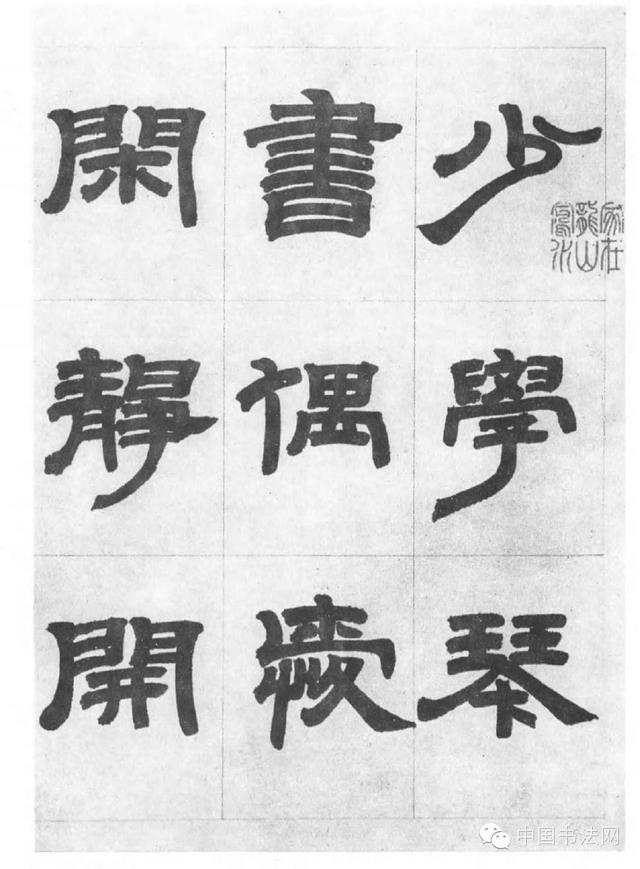 少學琴
書偶愛
閑靜開
家在
龍山
水
中国书法网